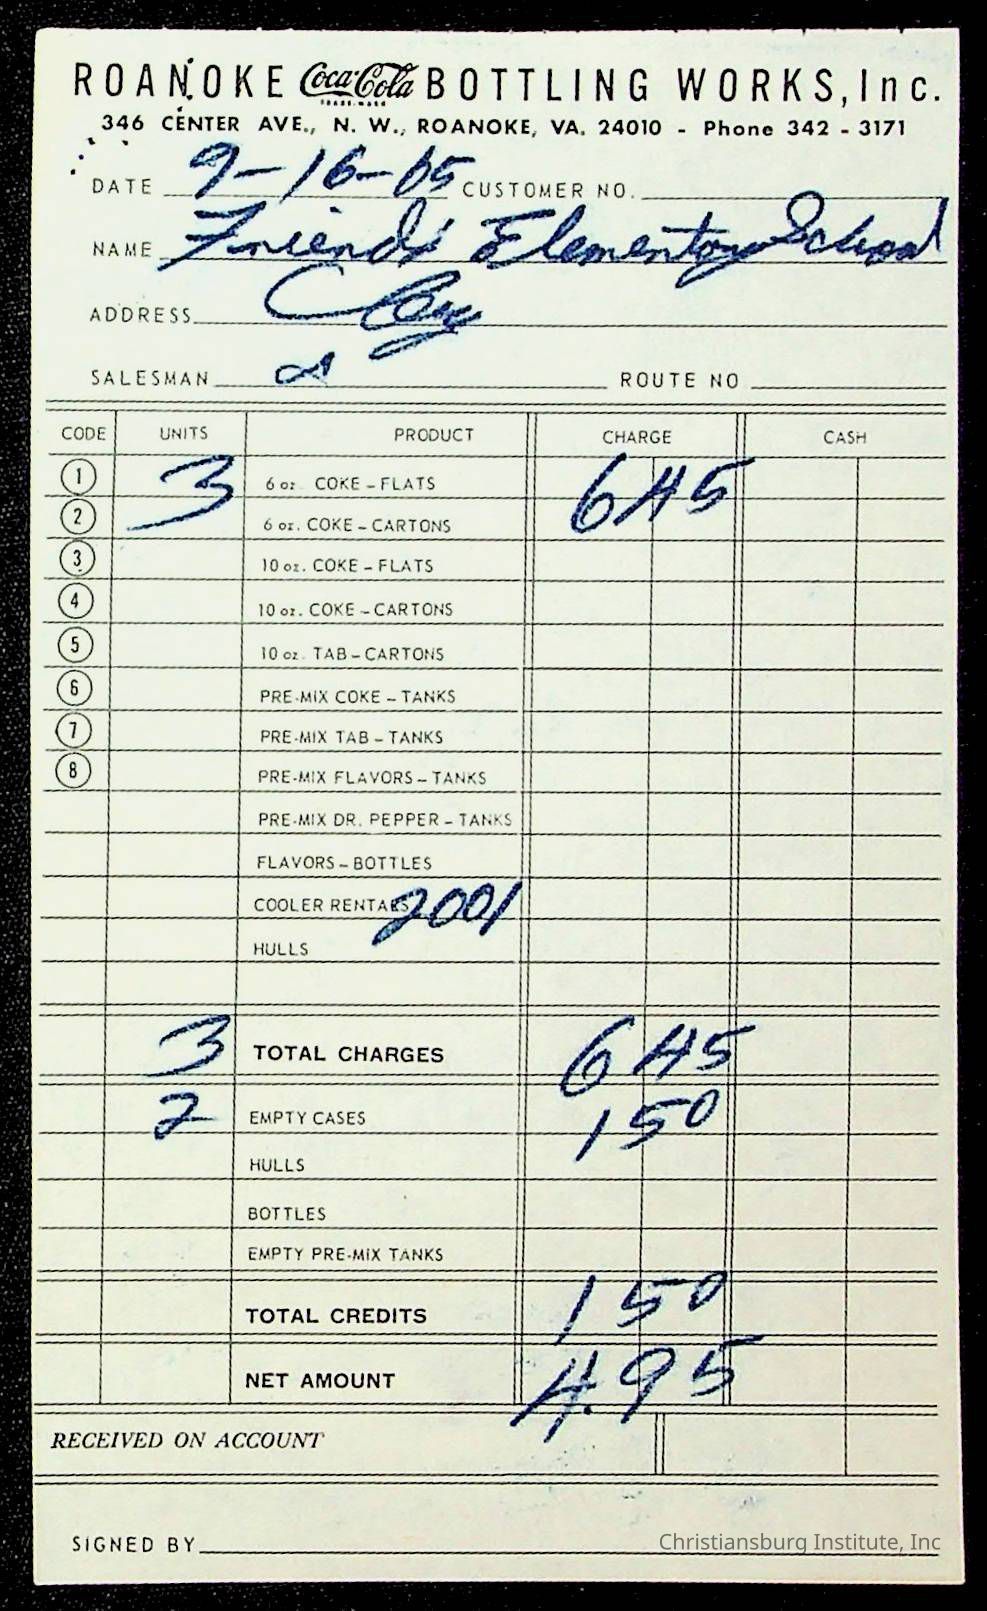 ROANOKE Coca-Cola BOTTLING WORKS, Inc.
TRADE-MARK
346 CENTER AVE., N. W., ROANOKE, VA. 24010 - Phone 342 - 3171
DATE 9-16-65 CUSTOMER NO.
NAME Friends Elementary School
ADDRESS
SALESMAN ROUTE NO
CODE UNITS PRODUCT CHARGE CASH
1 3 6 oz. COKE - FLATS 6 45
2 6 oz. COKE - CARTONS
3 10 oz. COKE - FLATS
4 10 oz. COKE - CARTONS
5 10 oz. TAB - CARTONS
6 PRE-MIX COKE - TANKS
7 PRE-MIX TAB - TANKS
8 PRE-MIX FLAVORS - TANKS
PRE-MIX DR. PEPPER - TANKS
FLAVORS - BOTTLES
COOLER RENTALS 2001
HULLS
3 TOTAL CHARGES 6 45
2 EMPTY CASES 1 50
HULLS
BOTTLES
EMPTY PRE-MIX TANKS
TOTAL CREDITS 1 50
NET AMOUNT 4.95
RECEIVED ON ACCOUNT
SIGNED BY
Christiansburg Institute, Inc